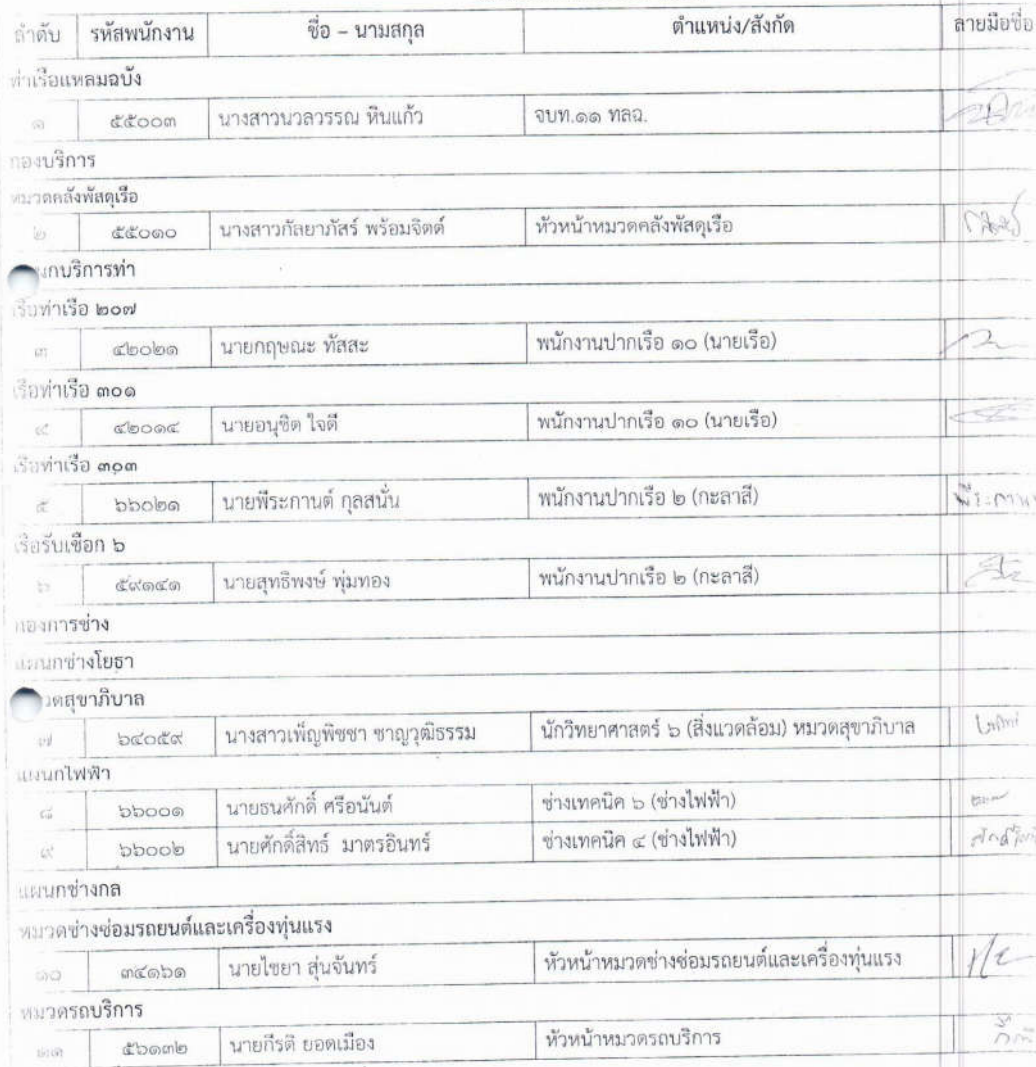 ลำดับ รหัสพนักงาน ชื่อ – นามสกุล ตำแหน่ง/สังกัด ลายมือชื่อ
ท่าเรือแหลมฉบัง
๑ ๕๕๐๐๓ นางสาวนวลวรรณ หินแก้ว จบท.๑๑ ทลฉ.
กองบริการ
หมวดคลังพัสดุเรือ
๒ ๕๕๐๑๐ นางสาวกัลยาภัสร์ พร้อมจิตต์ หัวหน้าหมวดคลังพัสดุเรือ
แผนกบริการท่า
เรือท่าเรือ ๒๐๗
๓ ๔๒๐๒๑ นายกฤษณะ ทัสสะ พนักงานปากเรือ ๑๐ (นายเรือ)
เรือท่าเรือ ๓๐๑
๔ ๔๒๐๑๔ นายอนุชิต ใจดี พนักงานปากเรือ ๑๐ (นายเรือ)
เรือท่าเรือ ๓๐๓
๕ ๖๖๐๒๑ นายพีระกานต์ กุลสนั่น พนักงานปากเรือ ๒ (กะลาสี)
เรือรับเชือก ๖
๖ ๕๙๑๔๑ นายสุทธิพงษ์ พุ่มทอง พนักงานปากเรือ ๒ (กะลาสี)
กองการช่าง
แผนกช่างโยธา
หมวดสุขาภิบาล
๗ ๖๔๐๕๙ นางสาวเพ็ญพิชชา ชาญวุฒิธรรม นักวิทยาศาสตร์ ๖ (สิ่งแวดล้อม) หมวดสุขาภิบาล
แผนกไฟฟ้า
๘ ๖๖๐๐๑ นายธนศักดิ์ ศรีอนันต์ ช่างเทคนิค ๖ (ช่างไฟฟ้า)
๙ ๖๖๐๐๒ นายศักดิ์สิทธ์ มาตรอินทร์ ช่างเทคนิค ๔ (ช่างไฟฟ้า)
แผนกช่างกล
หมวดช่างซ่อมรถยนต์และเครื่องทุ่นแรง
๑๐ ๓๔๑๖๑ นายไชยา สุ่นจันทร์ หัวหน้าหมวดช่างซ่อมรถยนต์และเครื่องทุ่นแรง
หมวดรถบริการ
๑๑ ๕๖๑๓๒ นายกีรติ ยอดเมือง หัวหน้าหมวดรถบริการ